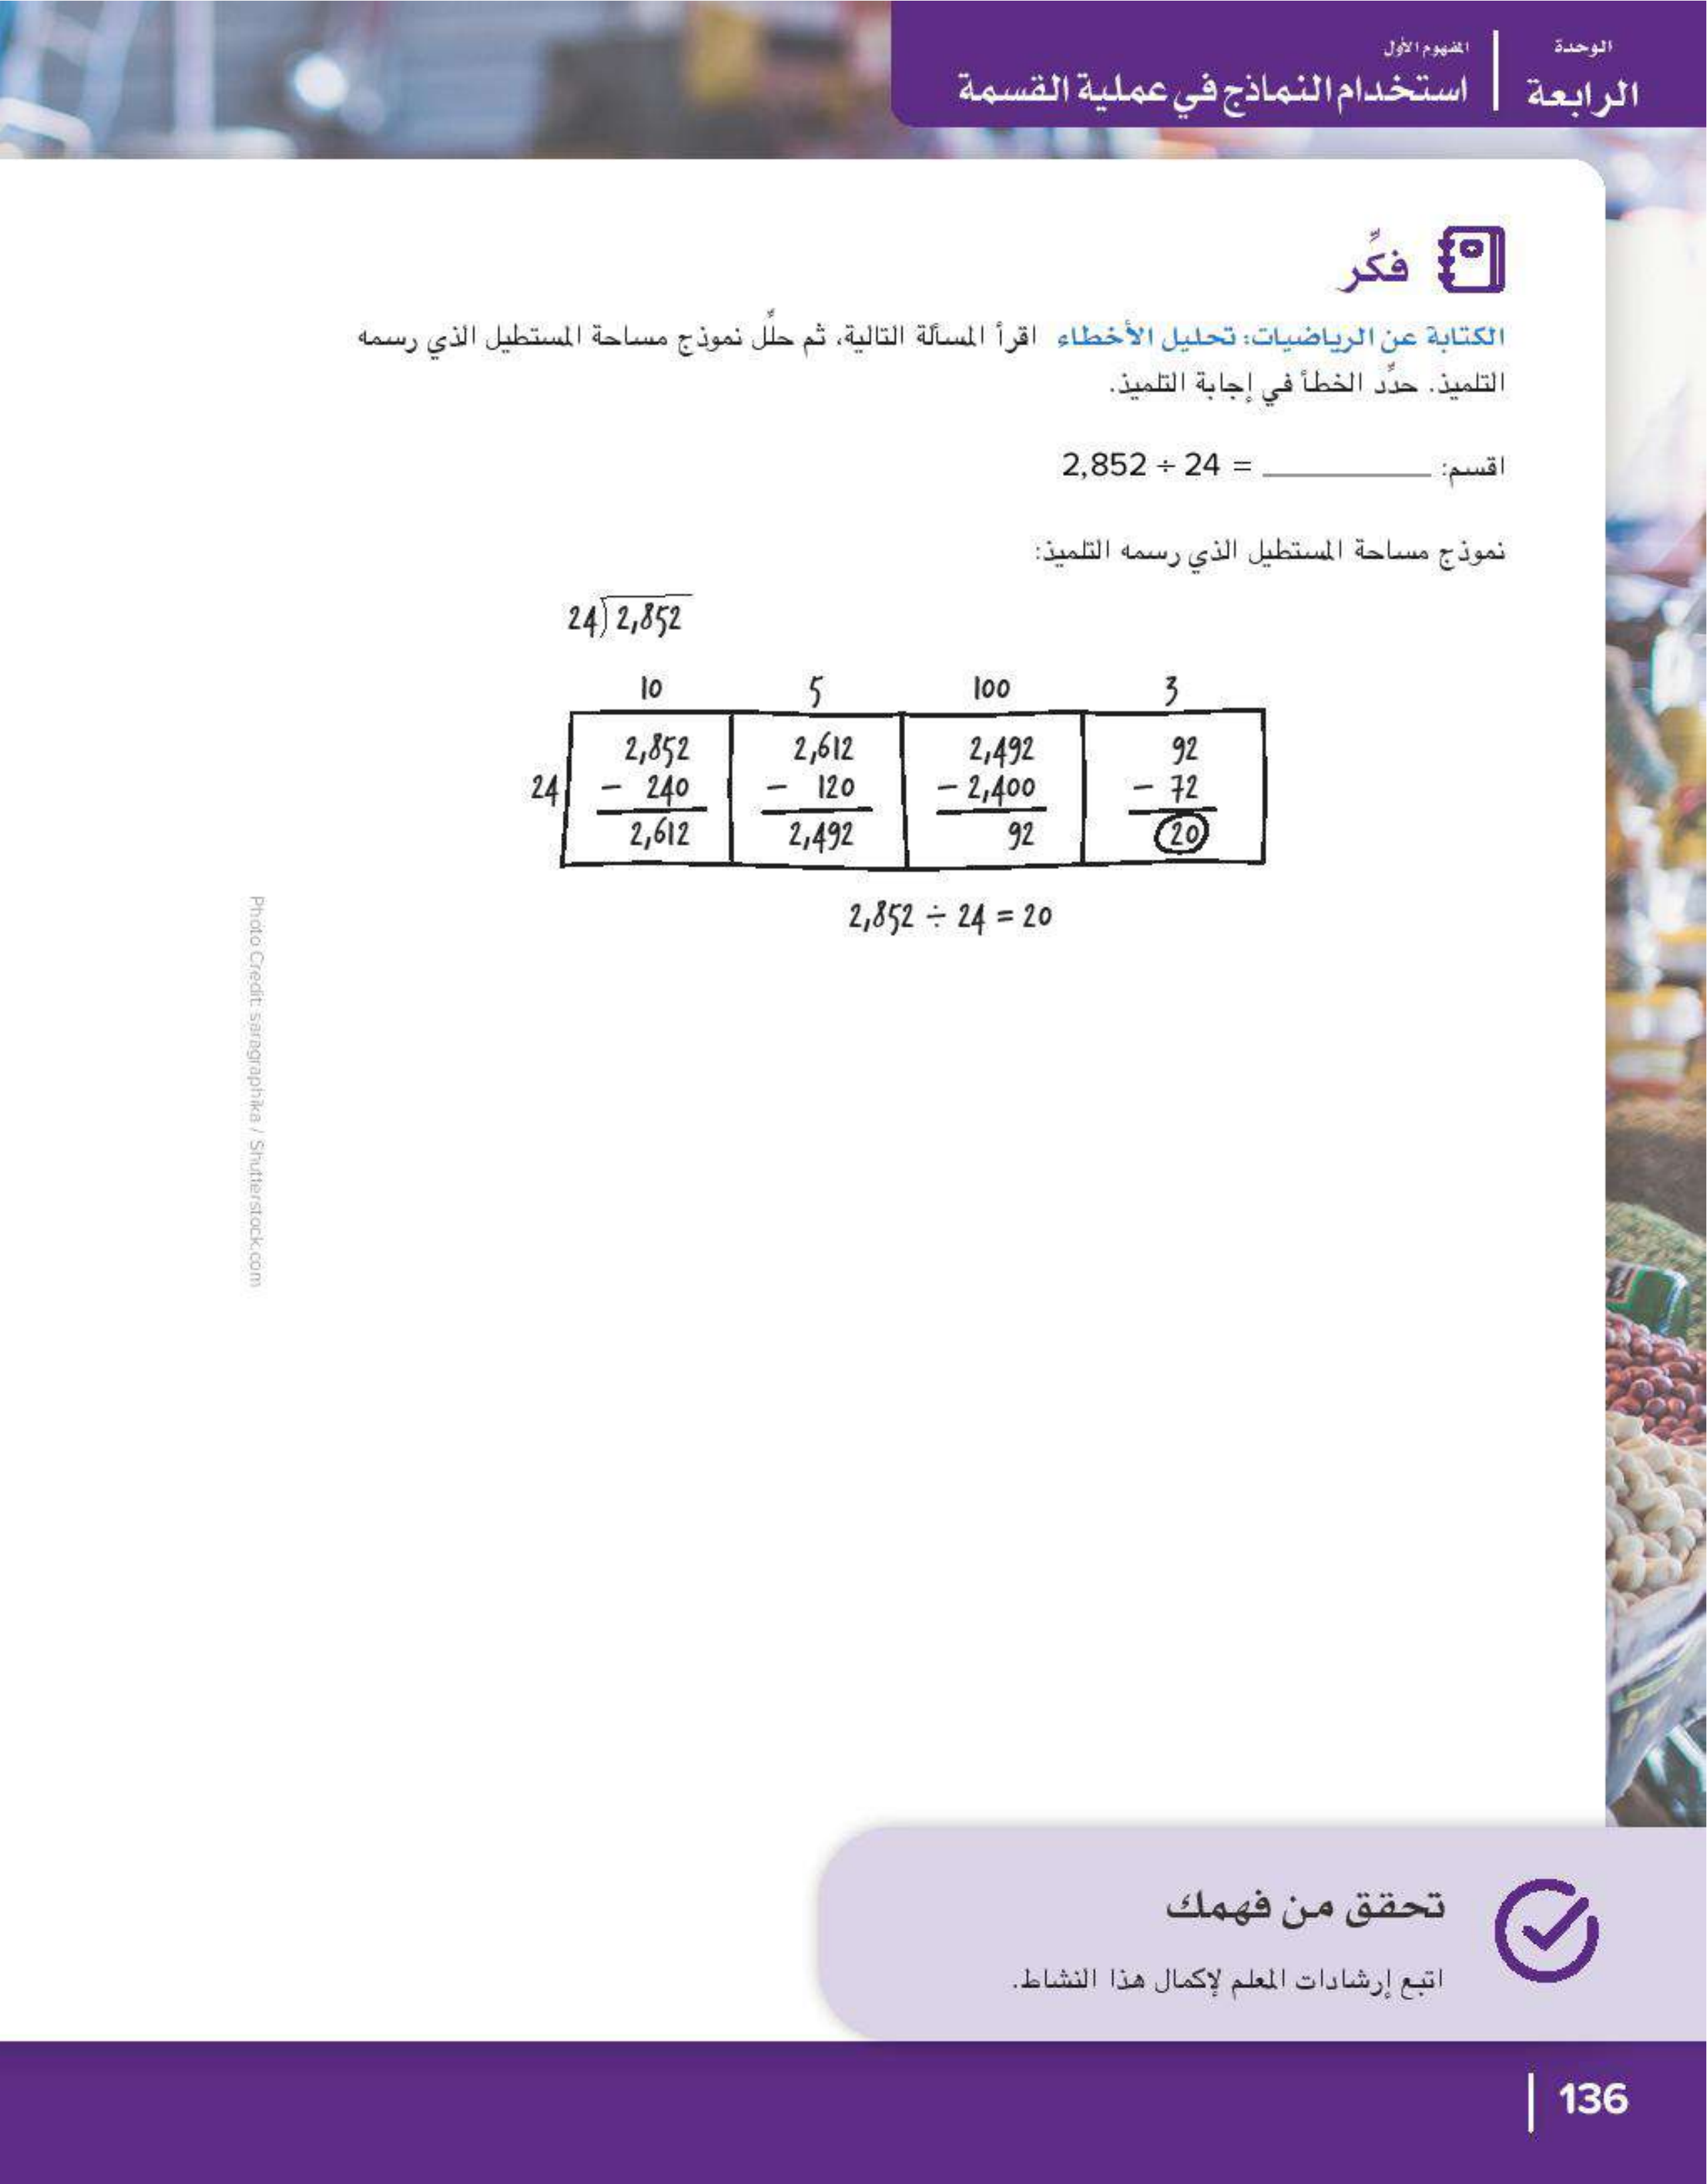 الوحدة
الرابعة
المفهوم الأول
استخدام النماذج في عملية القسمة
فكِّر
الكتابة عن الرياضيات: تحليل الأخطاء اقرأ المسألة التالية، ثم حلِّل نموذج مساحة المستطيل الذي رسمه
التلميذ. حدِّد الخطأ في إجابة التلميذ.
اقسم: 2,852 ÷ 24 = ________
نموذج مساحة المستطيل الذي رسمه التلميذ:
24) 2,852
10 5 100 3
2,852 2,612 2,492 92
24 - 240 - 120 - 2,400 - 72
2,612 2,492 92 20
2,852 ÷ 24 = 20
Photo Credit: saragraphika / Shutterstock.com
تحقق من فهمك
اتبع إرشادات المعلم لإكمال هذا النشاط.
136